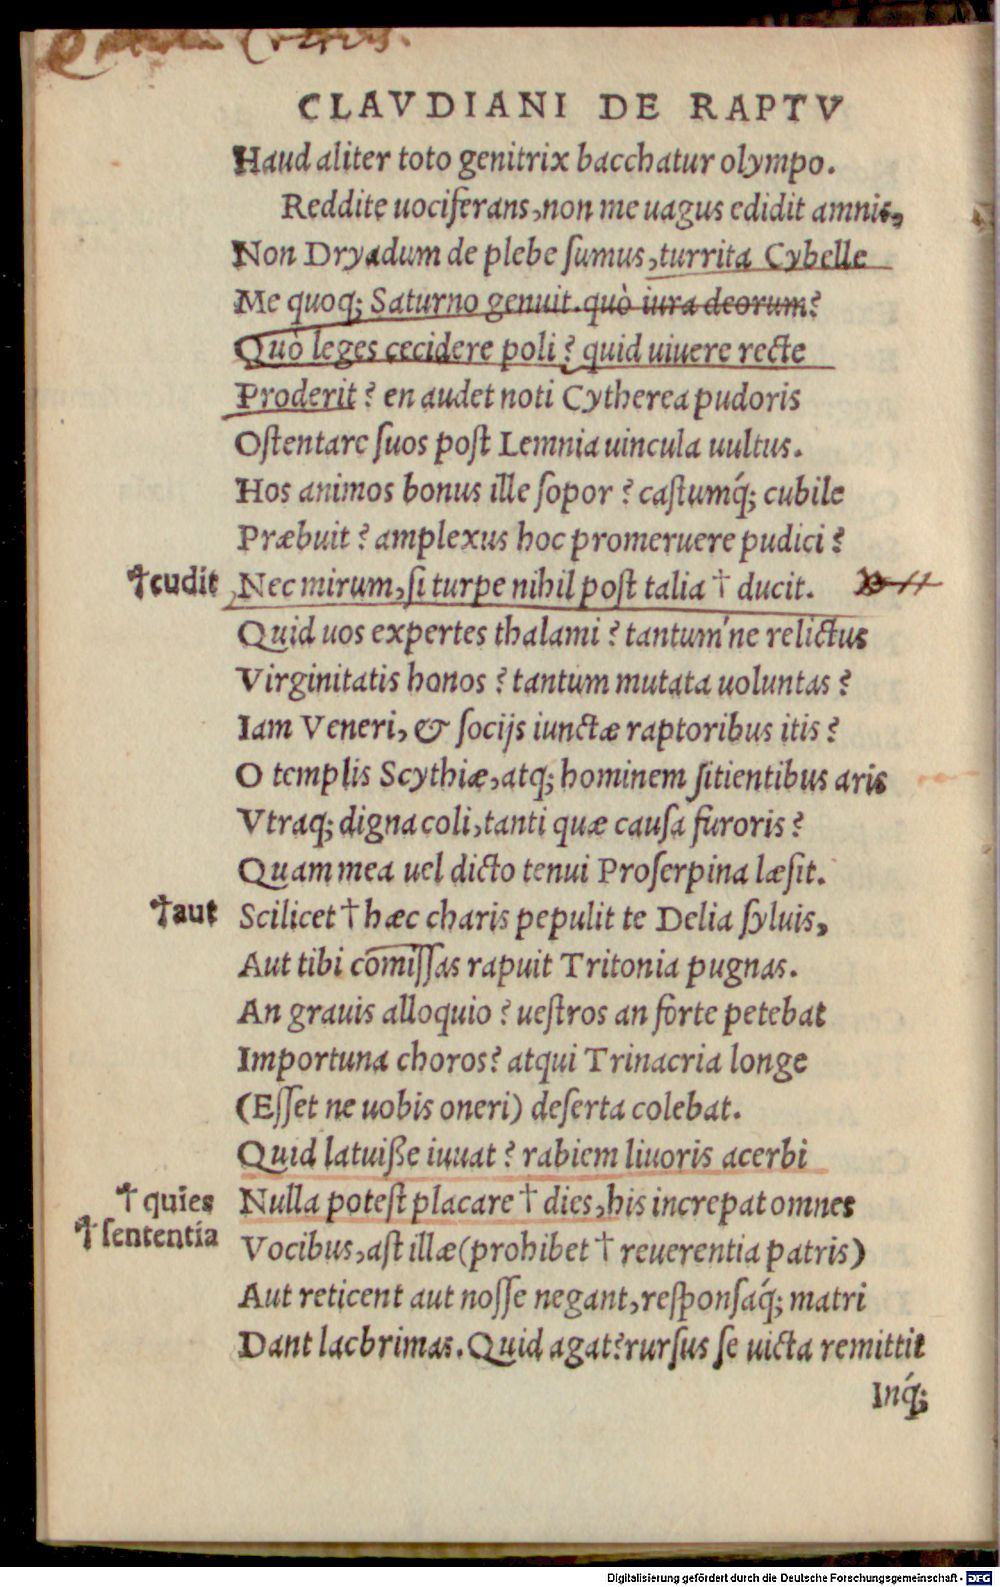 CLAVDIANI DE RAPTV
Haud aliter toto genitrix bacchatur olympo.
Reddite uociferans, non me uagus edidit amnis,
Non Dryadum de plebe ſumus, turrita Cybelle
Me quoq; Saturno genuit. quò iura deorum?
Quò leges cecidere poli? quid uiuere recte
Proderit? en audet noti Cytherea pudoris
Oſtentare ſuos poſt Lemnia uincula uultus.
Hos animos bonus ille ſopor? caſtumq́; cubile
Præbuit? amplexus hoc promeruere pudici?
†cudit Nec mirum, ſi turpe nihil poſt talia † ducit.
Quid uos expertes thalami? tantum'ne relictus
Virginitatis honos? tantum mutata uoluntas?
Iam Veneri, & ſocijs iunctæ raptoribus itis?
O templis Scythiæ, atq; hominem ſitientibus aris
Vtraq; digna coli, tanti quæ cauſa furoris?
Quam mea uel dicto tenui Proſerpina læſit.
†aut Scilicet † hæc charis pepulit te Delia ſyluis,
Aut tibi com̄iſſas rapuit Tritonia pugnas.
An grauis alloquio? ueſtros an forte petebat
Importuna choros? atqui Trinacria longe
(Eſſet ne uobis oneri) deſerta colebat.
Quid latuiße iuuat? rabiem liuoris acerbi
† quies Nulla poteſt placare † dies, his increpat omnes
† ſententia Vocibus, aſt illæ (prohibet † reuerentia patris)
Aut reticent aut noſſe negant, reſponſaq́; matri
Dant lachrimas. Quid agat? rurſus ſe uicta remittit
Inq́;
Digitalisierung gefördert durch die Deutsche Forschungsgemeinschaft - DFG